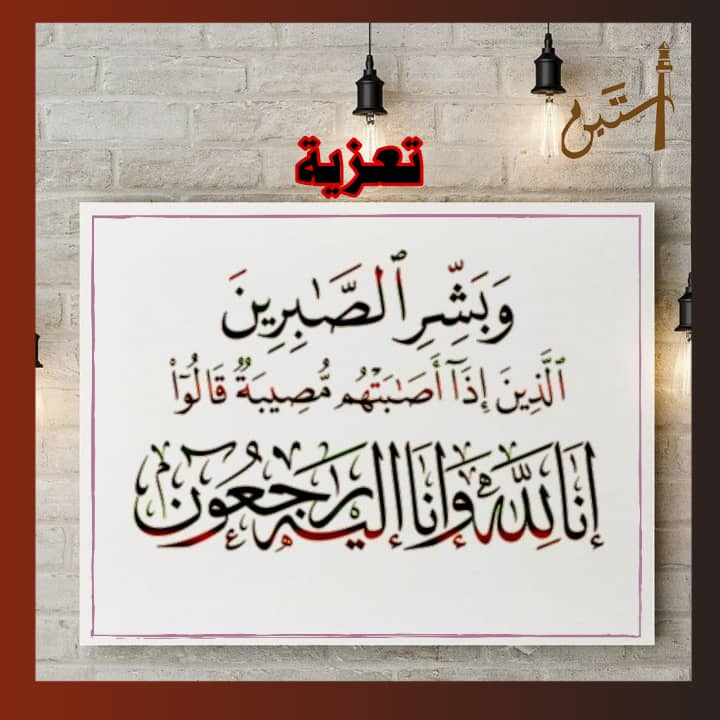 ستين
تعزية
وَبَشِّرِ ٱلصَّـٰبِرِينَ
ٱلَّذِينَ إِذَآ أَصَـٰبَتْهُم مُّصِيبَةٌ قَالُوٓا۟
إِنَا لِلَّهِ وَإِنَا إِلَيْهِ رَاجِعُونَ